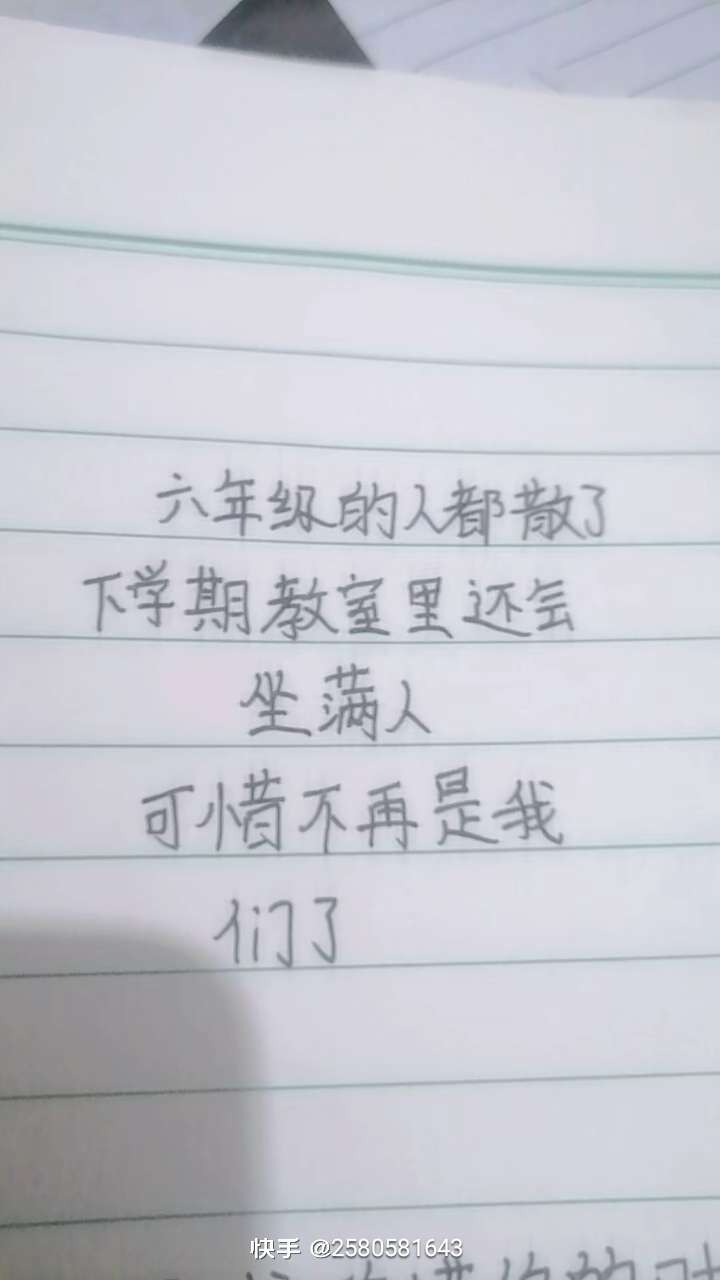 六年级的人都散了
下学期教室里还会
坐满人
可惜不再是我
们了
快手 @2580581643